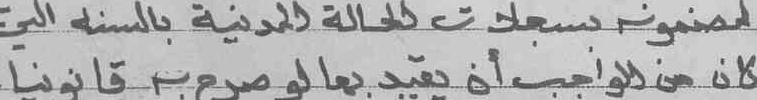 لمضمونه بسجلات الحالة المدنية بالسنة التي
كان من الواجب أن يقيد بها لو صرح به قانونيا